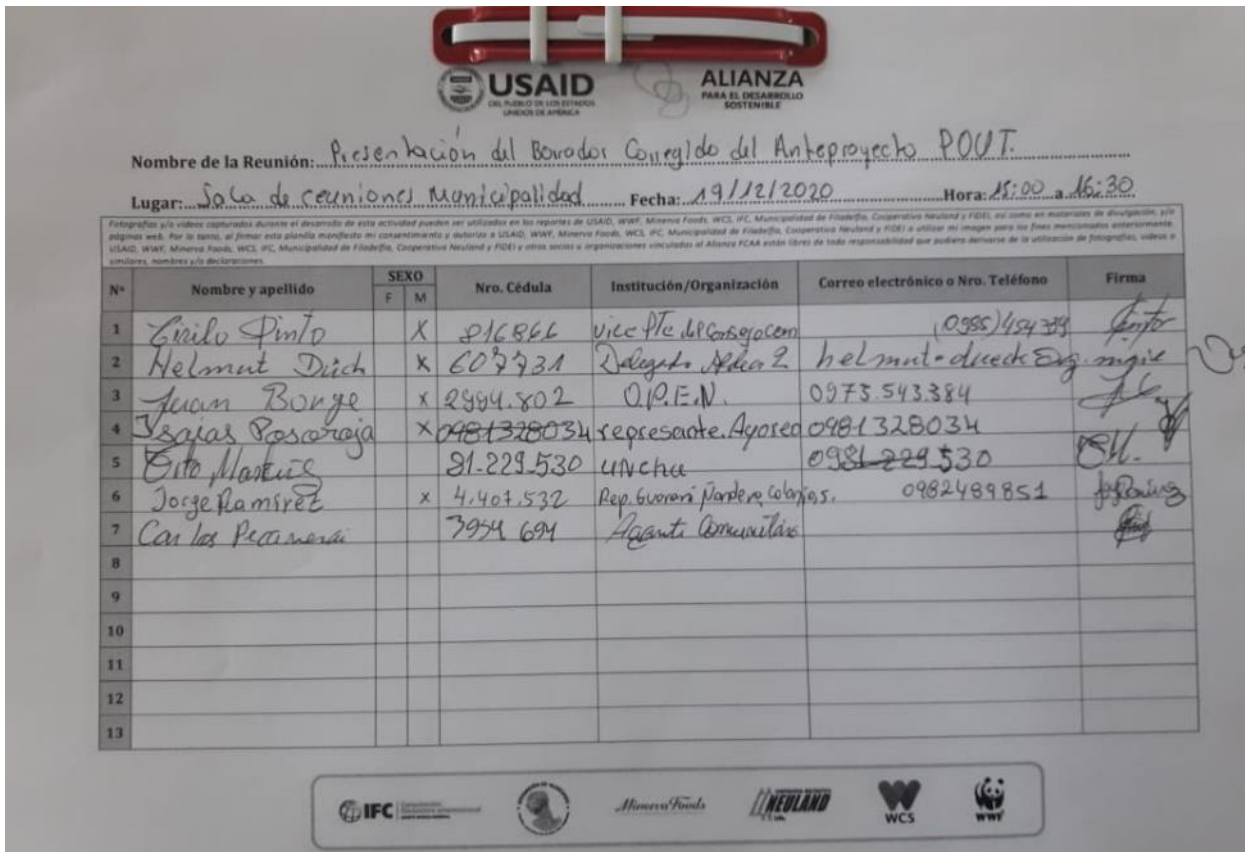 USAID
DEL PUEBLO DE LOS ESTADOS
UNIDOS DE AMÉRICA
ALIANZA
PARA EL DESARROLLO
SOSTENIBLE
Nombre de la Reunión: Presentación del Borrador Corregido del Anteproyecto POUT.
Lugar: Sala de reuniones Municipalidad Fecha: 19/12/2020 Hora: 15:00 a 16:30
Fotografías y/o videos capturados durante el desarrollo de esta actividad pueden ser utilizados en los reportes de USAID, WWF, Minerva Foods, WCS, IFC, Municipalidad de Filadelfia, Cooperativa Neuland y FIDEI, así como en materiales de divulgación, y/o
páginas web. Por lo tanto, al firmar esta planilla manifiesto mi consentimiento y autorizo a USAID, WWF, Minerva Foods, WCS, IFC, Municipalidad de Filadelfia, Cooperativa Neuland y FIDEI a utilizar mi imagen para los fines mencionados anteriormente.
USAID, WWF, Minerva Foods, WCS, IFC, Municipalidad de Filadelfia, Cooperativa Neuland y FIDEI y otros socios u organizaciones vinculadas al Alianza FCAA están libres de toda responsabilidad que pudiera derivarse de la utilización de fotografías, videos o
similares, nombres y/o declaraciones.
N° Nombre y apellido SEXO F M Nro. Cédula Institución/Organización Correo electrónico o Nro. Teléfono Firma
1 Cirilo Pinto X 816866 Vice Pte del (0985)
2 Helmut Dück X 607731 Delegado Aldea 2 helmut-dueck
3 Juan Borge x 2994.802 O.P.E.N. 0973.543.384
4 Isaias X 0981328034 represante. Ayoreo 0981328034
5 91-229-530 UNcha 0981-229530
6 Jorge Ramirez x 4.407.532 Rep. Guaraní Ñandeva 0982489851
7 Carlos 3954 694 Agente Comunitario
8
9
10
11
12
13
IFC
Minerva Foods
NEULAND
WCS
WWF